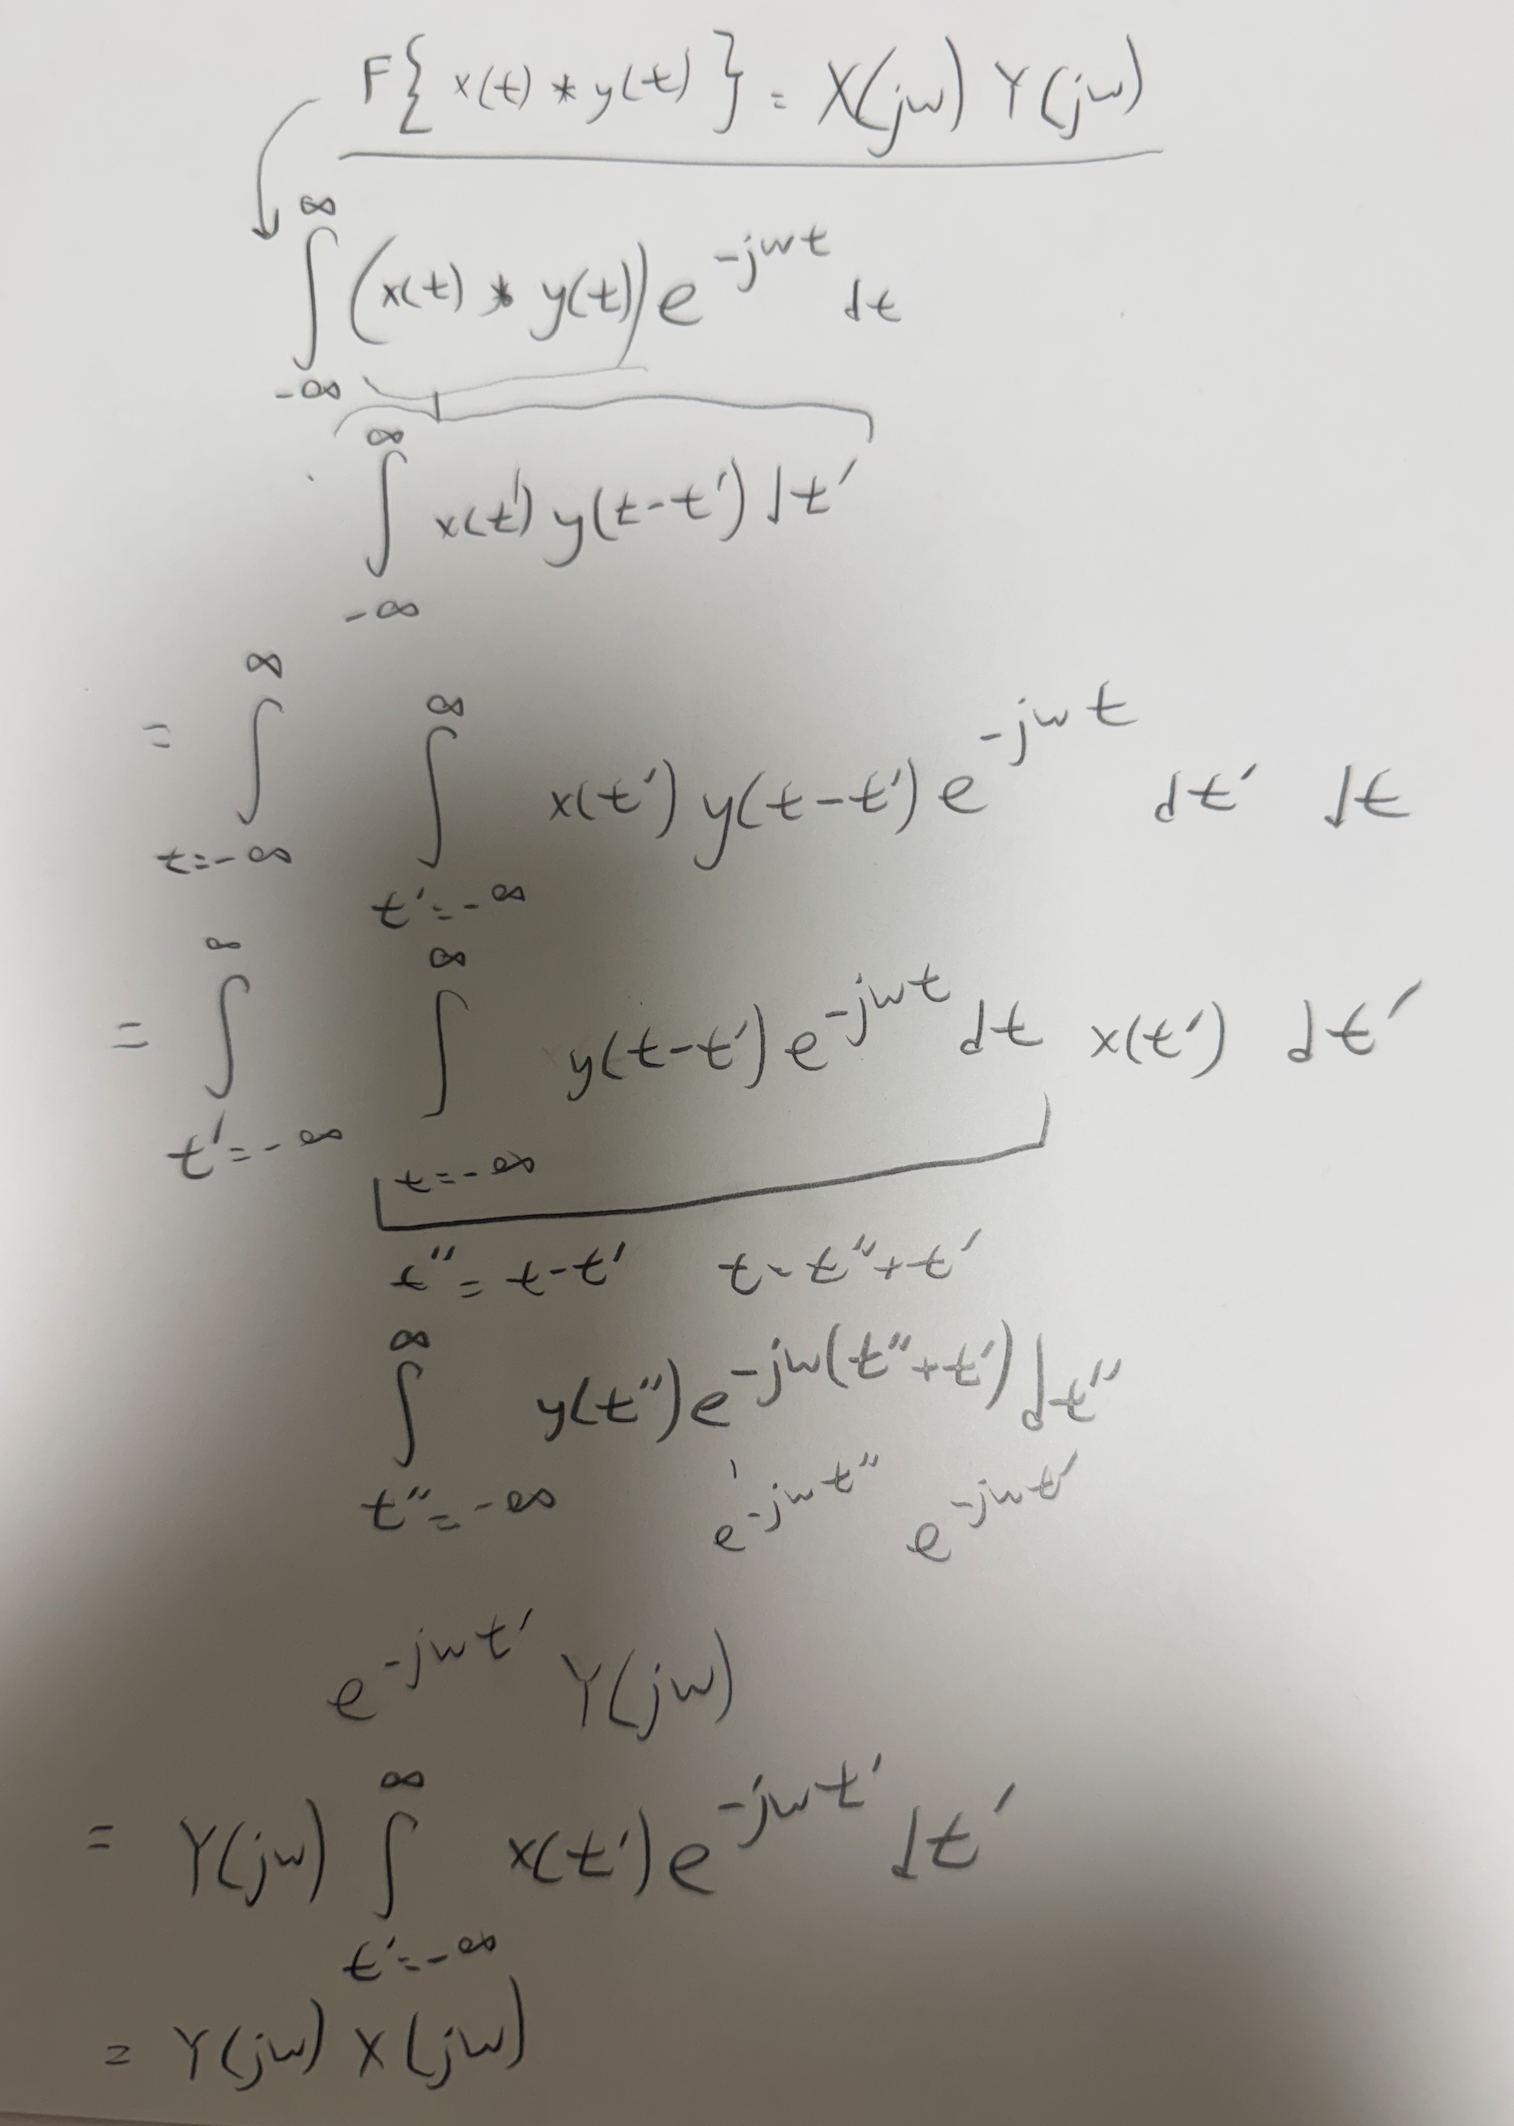 F{ x(t) * y(t) } = X(jw) Y(jw)
∫_{-∞}^{∞} (x(t) * y(t)) e^{-jwt} dt
∫_{-∞}^{∞} x(t') y(t-t') dt'
= ∫_{t=-∞}^{∞} ∫_{t'=-∞}^{∞} x(t') y(t-t') e^{-jwt} dt' dt
= ∫_{t'=-∞}^{∞} ∫_{t=-∞}^{∞} y(t-t') e^{-jwt} dt x(t') dt'
t'' = t-t' t = t''+t'
∫_{t''=-∞}^{∞} y(t'') e^{-jw(t''+t')} dt''
e^{-jwt''} e^{-jwt'}
e^{-jwt'} Y(jw)
= Y(jw) ∫_{t'=-∞}^{∞} x(t') e^{-jwt'} dt'
= Y(jw) X(jw)